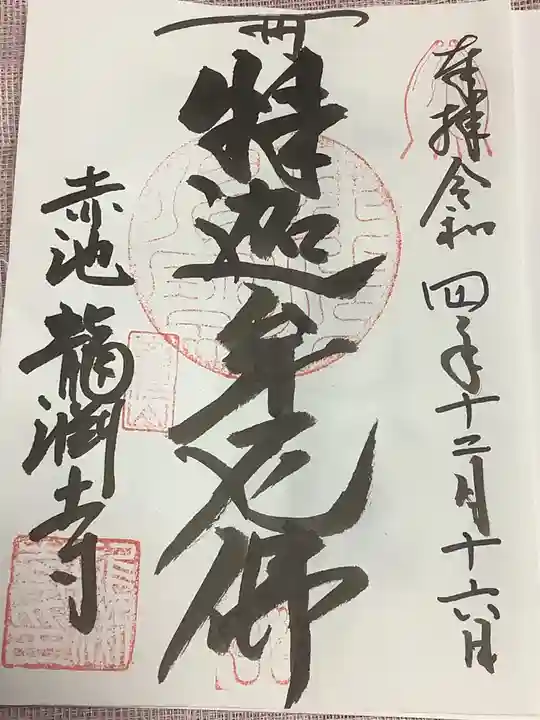 奉拝 令和四年十二月十六日
釈迦牟尼佛
赤池 龍淵寺